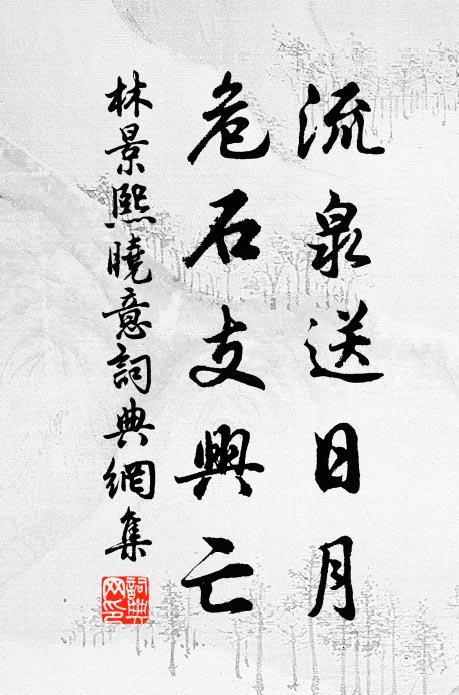 流泉送日月
危石支興亡
林景熙曉意詞典網集
詞典網印